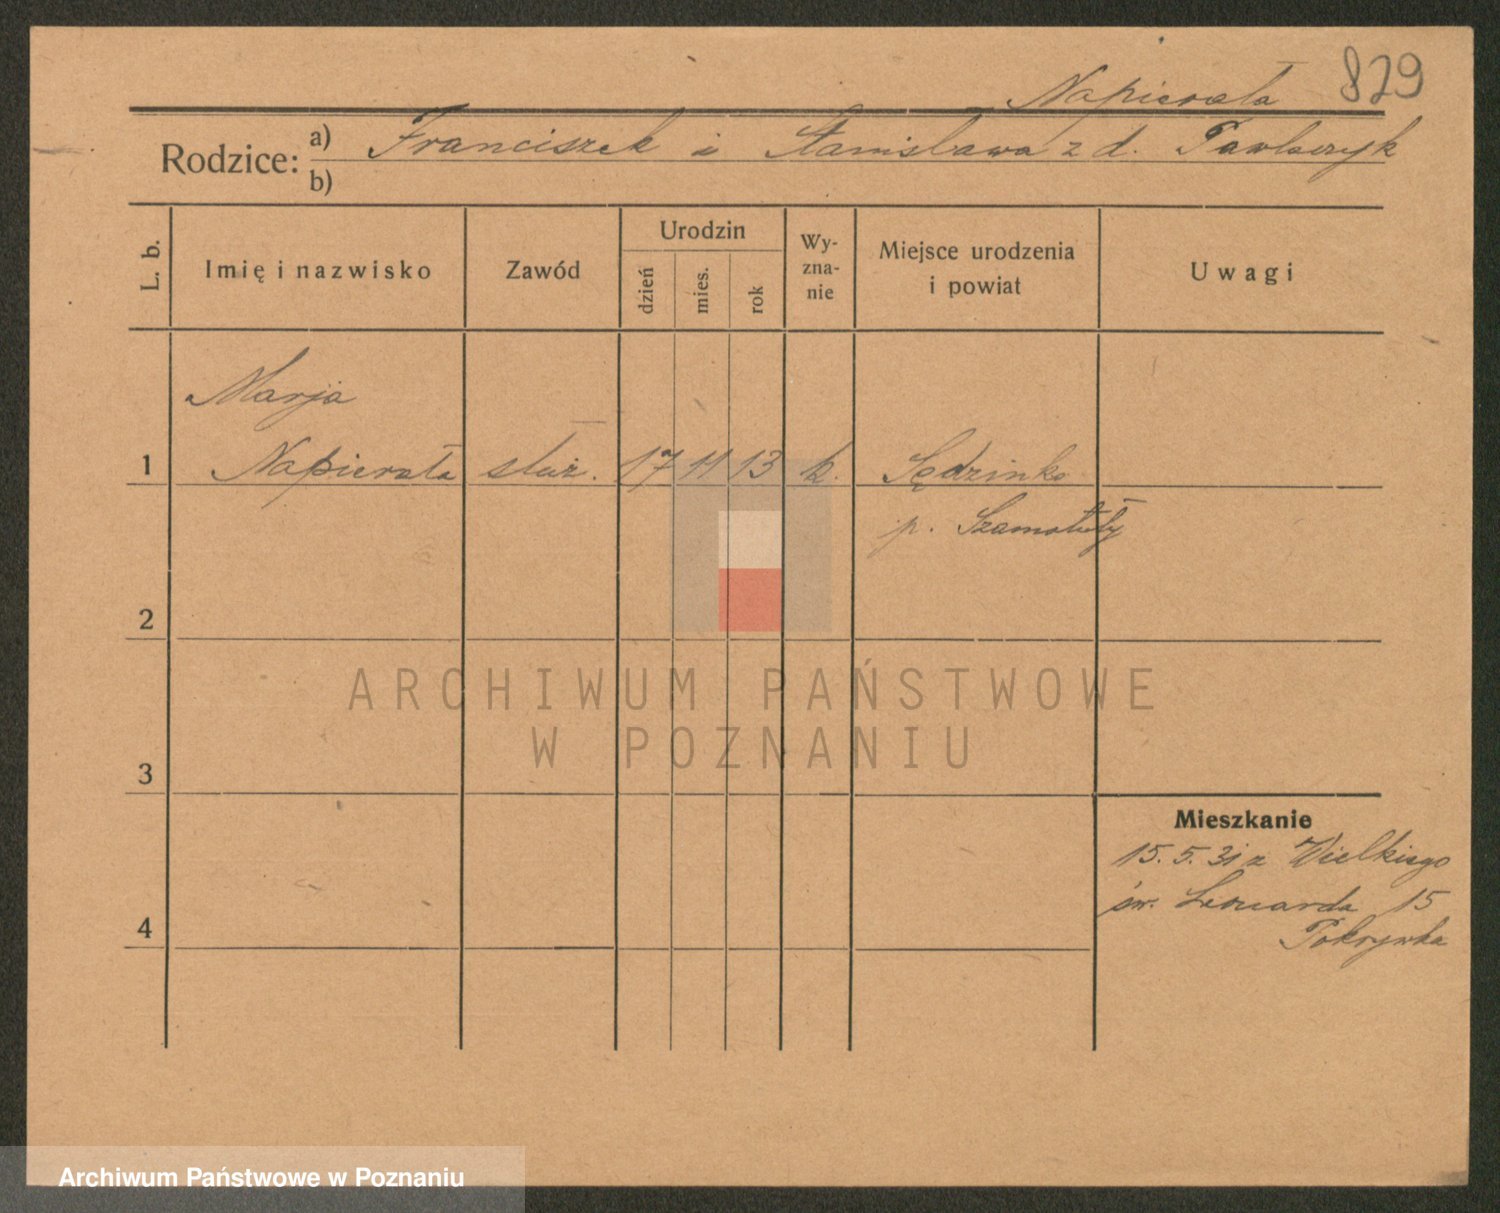 829
Napierała
Rodzice: a) Franciszek i Stanisława z d. Pawlaczyk
b)
L. b.
Imię i nazwisko
Zawód
Urodzin
dzień
mies.
rok
Wy-
zna-
nie
Miejsce urodzenia
i powiat
Uwagi
Marja
1 Napierała służ. 17 11 13 k. Sędzinko
p. Szamotuły
2
3
4
Mieszkanie
15. 5. 31 z Wielkiego
św. Leonarda 15
Pokrywka
ARCHIWUM PAŃSTWOWE
W POZNANIU
Archiwum Państwowe w Poznaniu